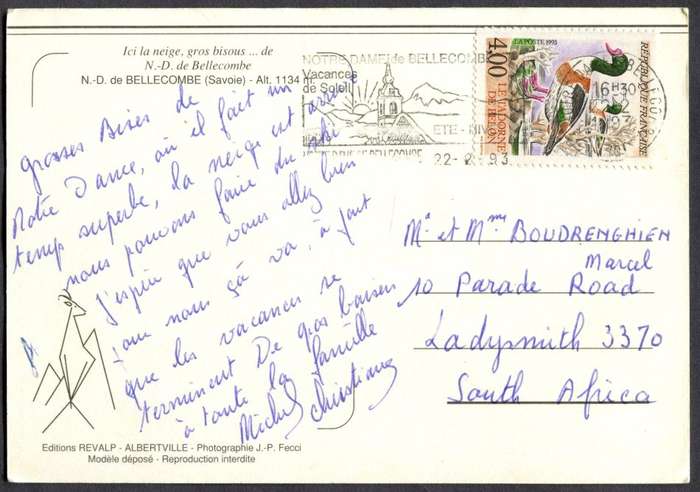 Ici la neige, gros bisous ... de
N.-D. de Bellecombe
N.-D. de BELLECOMBE (Savoie) - Alt. 1134 m.
grosses Bises de
Notre Dame, où il fait un
temps superbe, la neige est arrivé
nous pouvons faire du ski
j'espère que vous allez bien
pour nous çà va, à part
que les vacances se
terminent De gros baisers
à toute la famille
Michel Christiane
Editions REVALP - ALBERTVILLE - Photographie J.-P. Fecci
Modèle déposé - Reproduction interdite
NOTRE DAME de BELLECOMBE
Vacances
de Soleil
ETE-HIV
BELLECOMBE
16H30
22-2 93
LA POSTE 1993
4,00
REPUBLIQUE FRANÇAISE
Mr et Mme BOUDRENGHIEN
Marcel
10 Parade Road
Ladysmith 3370
South Africa